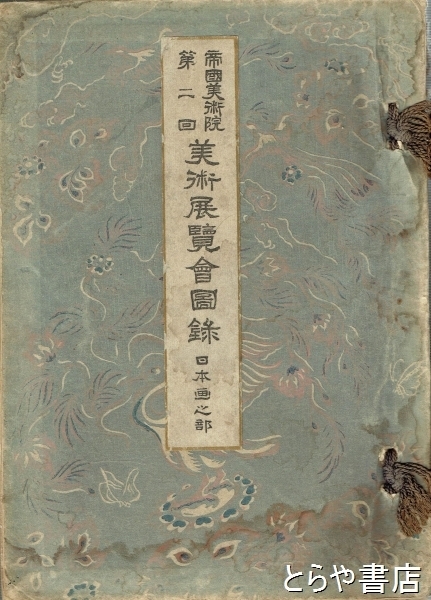 帝國美術院
第二回
美術展覽會圖錄
日本画之部
とらや書店